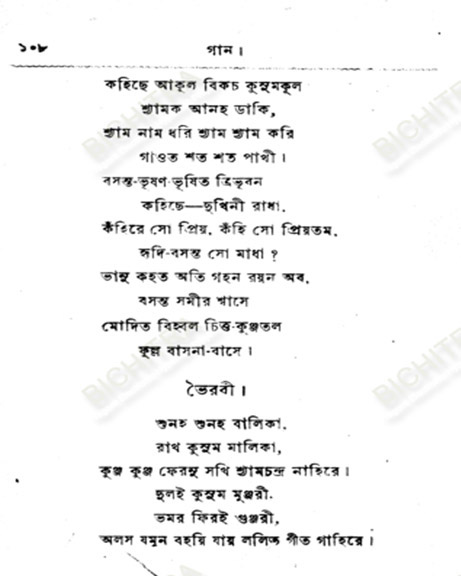 ১০৮
গান ।
কহিছে আকুল বিকচ কুসুমকূল
শ্যামক আনহ ডাকি,
শ্যাম নাম ধরি শ্যাম শ্যাম করি
গাওত শত শত পাখী ।
বসন্ত-ভূষণ-ভূষিত ত্রিভূবন
কহিছে—দুখিনী রাধা,
কঁহিরে সো প্রিয়, কঁহি সো প্রিয়তম,
হৃদি-বসন্ত সো মাধা ?
ভানু কহত অতি গহন রয়ন অব,
বসন্ত সমীর শ্বাসে
মোদিত বিহ্বল চিত্ত-কুঞ্জতল
ফুল্ল বাসনা-বাসে ।
ভৈরবী ।
শুনহ শুনহ বালিকা,
রাখ কুসুম মালিকা,
কুঞ্জ কুঞ্জ ফেরনু সখি শ্যামচন্দ্র নাহিরে ।
দুলই কুসুম মুঞ্জরী,
ভমর ফিরই গুঞ্জরী,
অলস যমুন বহয়ি যায় ললিত গীত গাহিরে ।
BICHITRA
BICHITRA
BICHITRA
BICHITRA